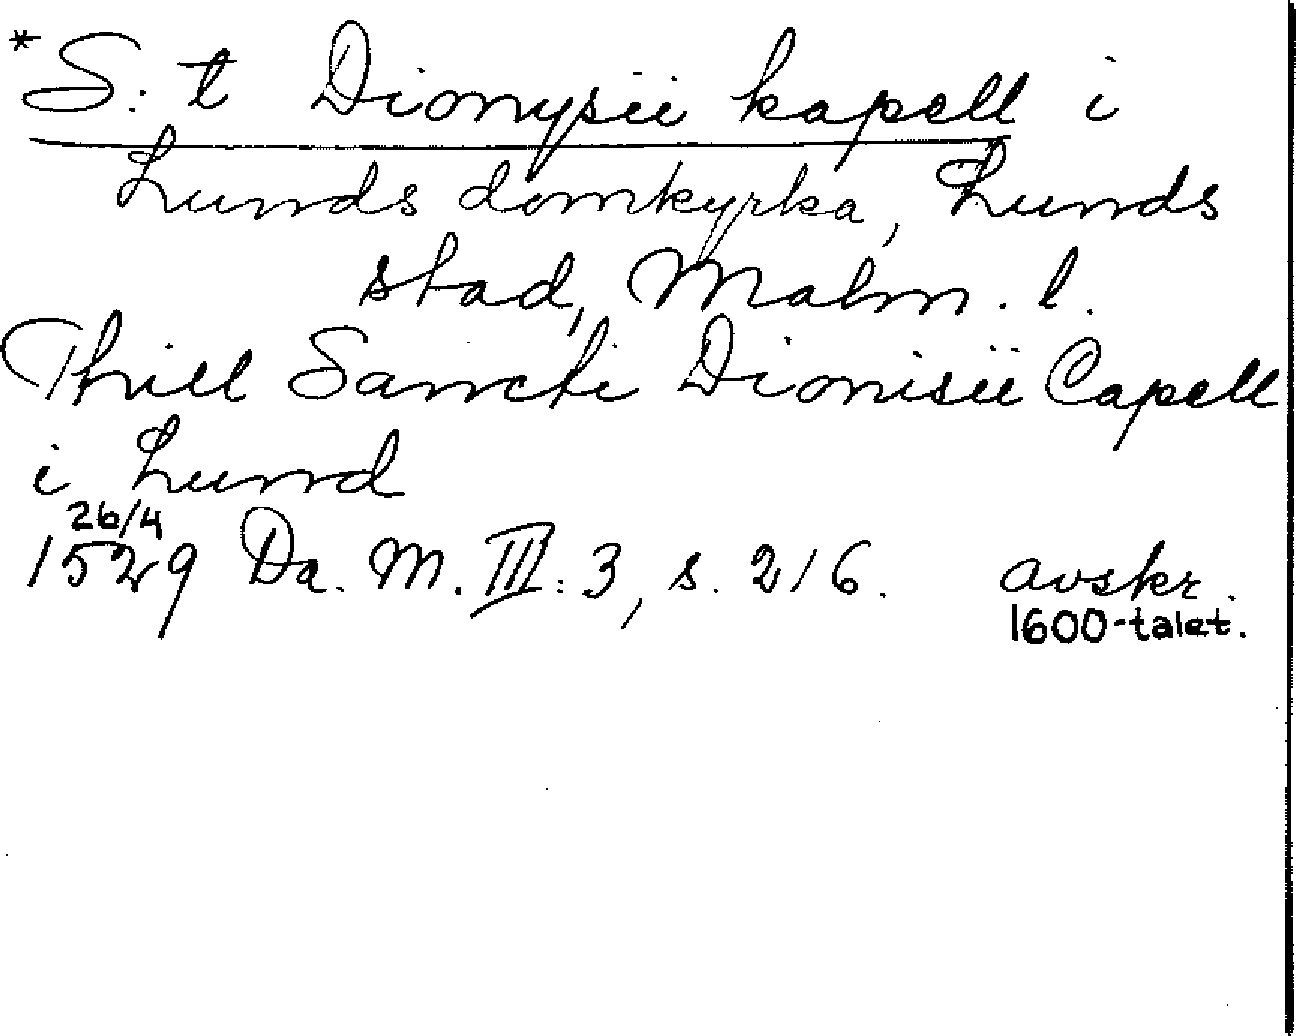 *S:t Dionysii kapell i
Lunds domkyrka, Lunds
stad, Malm. l.
Thill Sancti Dionisii Capell
i Lund
26/4
1529 Da. M. III: 3, s. 216. avskr.
1600-talet.